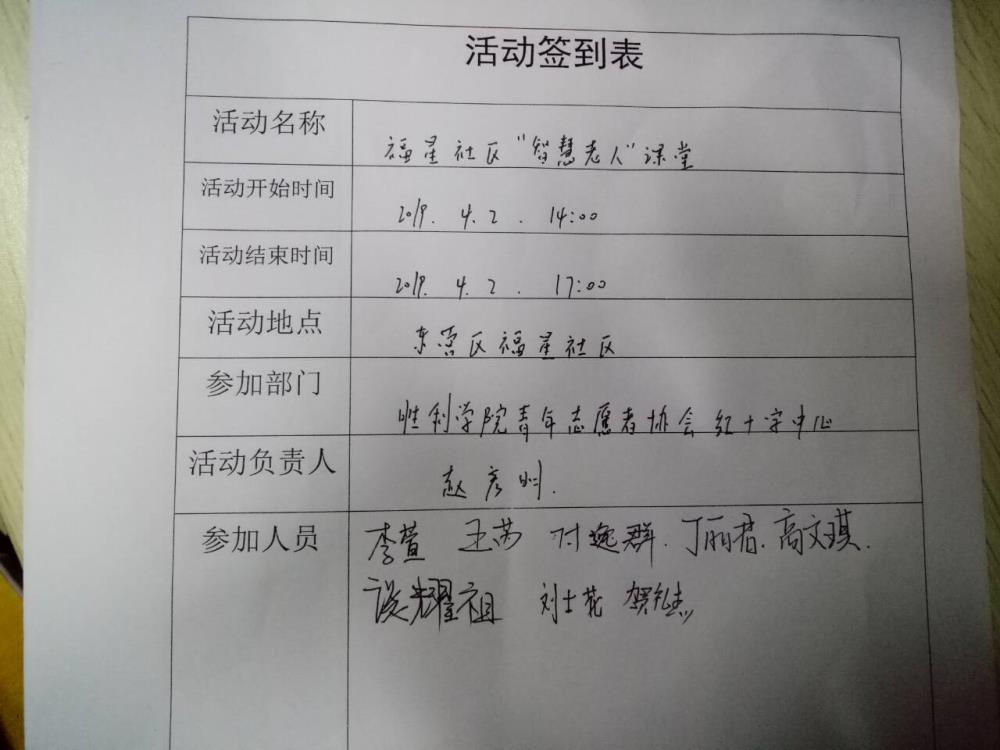 活动签到表
活动名称 福星社区“智慧老人”课堂
活动开始时间 2019. 4. 2. 14:00
活动结束时间 2019. 4. 2. 17:00
活动地点 东营区福星社区
参加部门 胜利学院青年志愿者协会红十字中心
活动负责人 赵彦
参加人员 李萱 王芮 付逸群. 丁丽君. 高文琪.
谈耀祖 刘士花